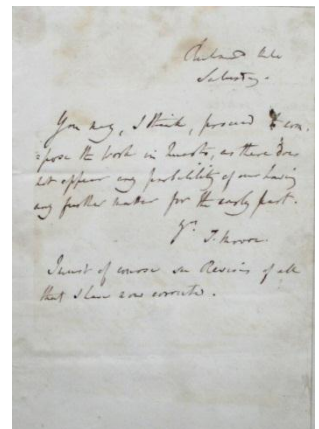 Saturday.
You may, I think, proceed to com-
:pose the work in Quarto, as there does
not appear any probability of our having
any further matter for the early part.
Yrs
T. Moore.
I must of course see Revises of all
that I have now corrected.